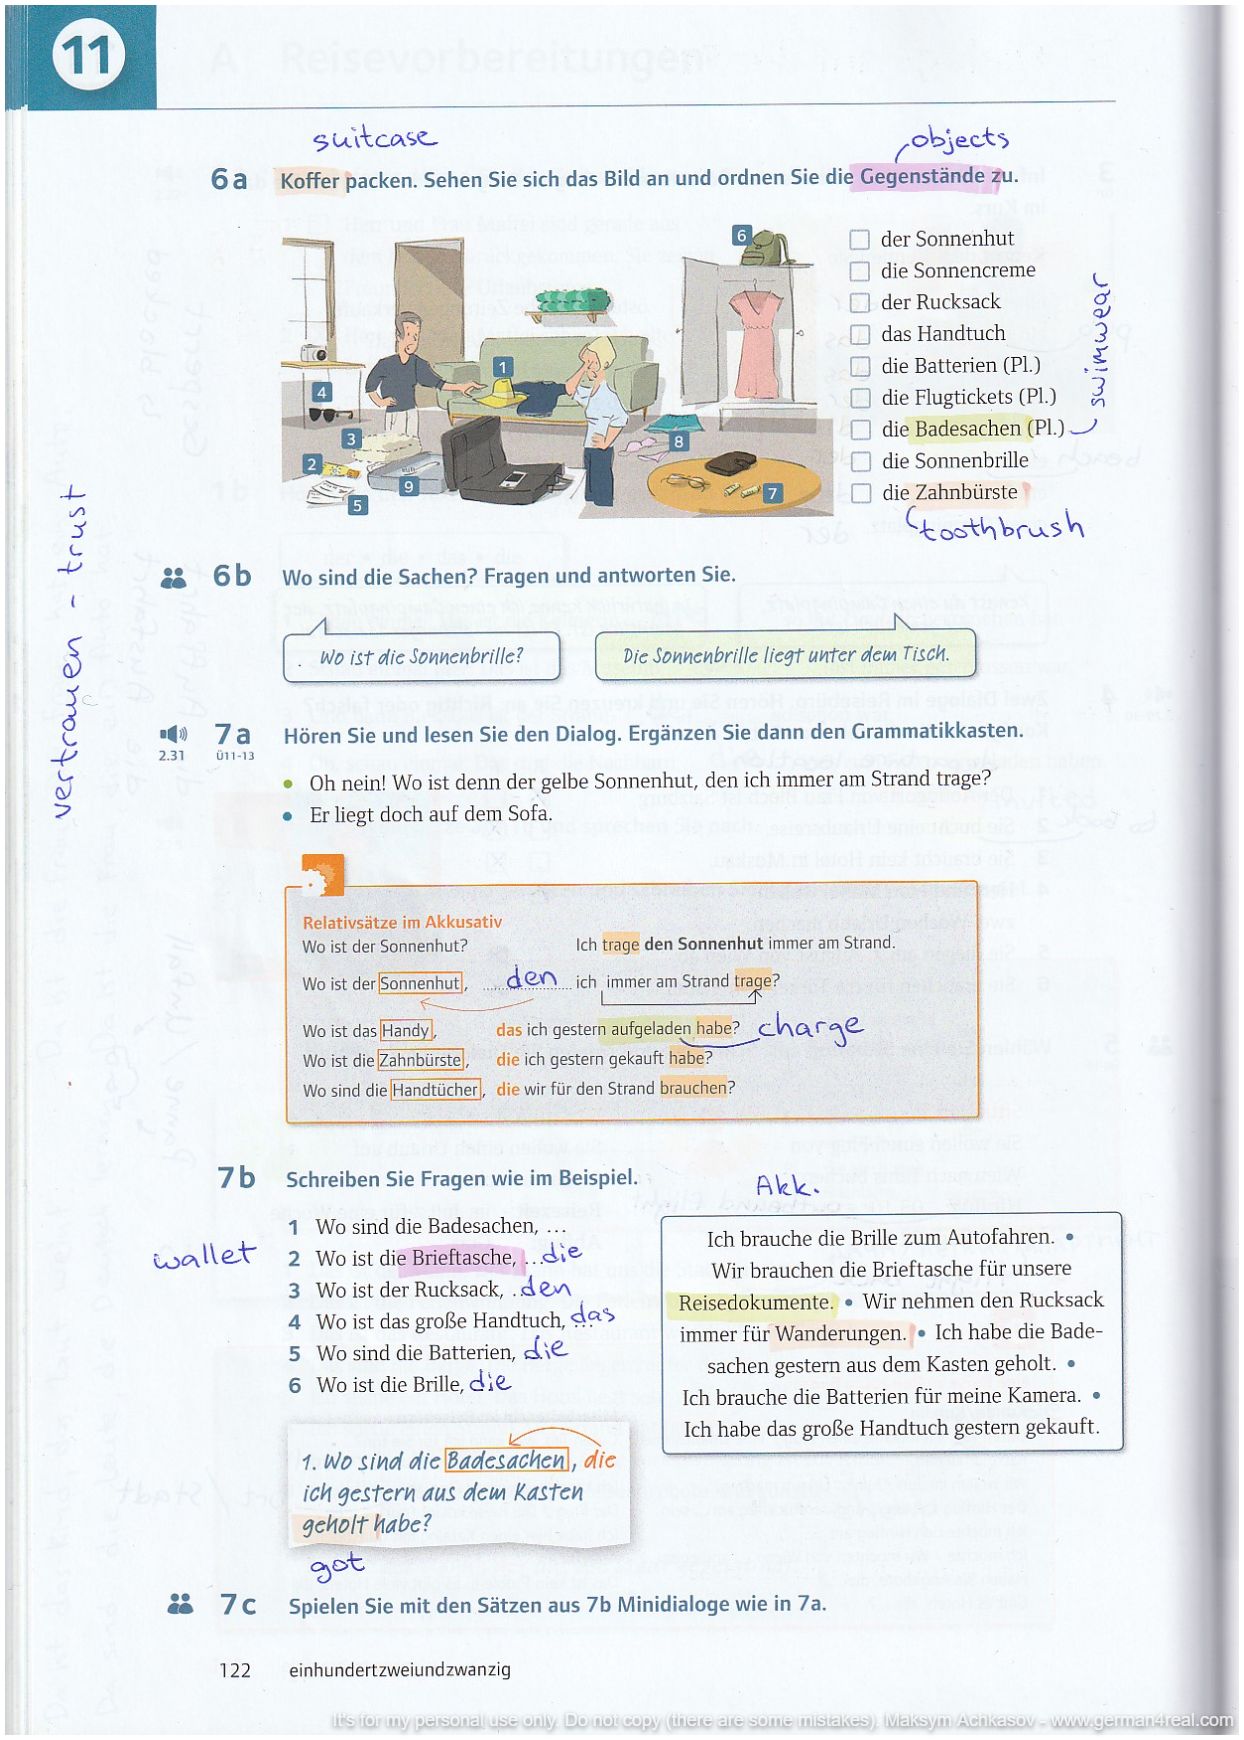 11
suitcase
objects
6a Koffer packen. Sehen Sie sich das Bild an und ordnen Sie die Gegenstände zu.
6
1
4
3
2
9
5
8
7
der Sonnenhut
die Sonnencreme
der Rucksack
das Handtuch
die Batterien (Pl.)
die Flugtickets (Pl.)
die Badesachen (Pl.)
die Sonnenbrille
die Zahnbürste
swimwear
toothbrush
vertrauen - trust
6b Wo sind die Sachen? Fragen und antworten Sie.
Wo ist die Sonnenbrille?
Die Sonnenbrille liegt unter dem Tisch.
7a Hören Sie und lesen Sie den Dialog. Ergänzen Sie dann den Grammatikkasten.
2.31 Ü11-13
• Oh nein! Wo ist denn der gelbe Sonnenhut, den ich immer am Strand trage?
• Er liegt doch auf dem Sofa.
Relativsätze im Akkusativ
Wo ist der Sonnenhut? Ich trage den Sonnenhut immer am Strand.
Wo ist der Sonnenhut, den ich immer am Strand trage?
Wo ist das Handy, das ich gestern aufgeladen habe? charge
Wo ist die Zahnbürste, die ich gestern gekauft habe?
Wo sind die Handtücher, die wir für den Strand brauchen?
7b Schreiben Sie Fragen wie im Beispiel.
1 Wo sind die Badesachen, ...
wallet
2 Wo ist die Brieftasche, ...die
3 Wo ist der Rucksack, .den
4 Wo ist das große Handtuch, das
5 Wo sind die Batterien, die
6 Wo ist die Brille, die
Akk.
Ich brauche die Brille zum Autofahren. •
Wir brauchen die Brieftasche für unsere
Reisedokumente. • Wir nehmen den Rucksack
immer für Wanderungen. • Ich habe die Bade-
sachen gestern aus dem Kasten geholt. •
Ich brauche die Batterien für meine Kamera. •
Ich habe das große Handtuch gestern gekauft.
1. Wo sind die Badesachen, die
ich gestern aus dem Kasten
geholt habe?
got
7c Spielen Sie mit den Sätzen aus 7b Minidialoge wie in 7a.
122 einhundertzweiundzwanzig
It's for my personal use only. Do not copy (there are some mistakes). Maksym Achkasov - www.german4real.com